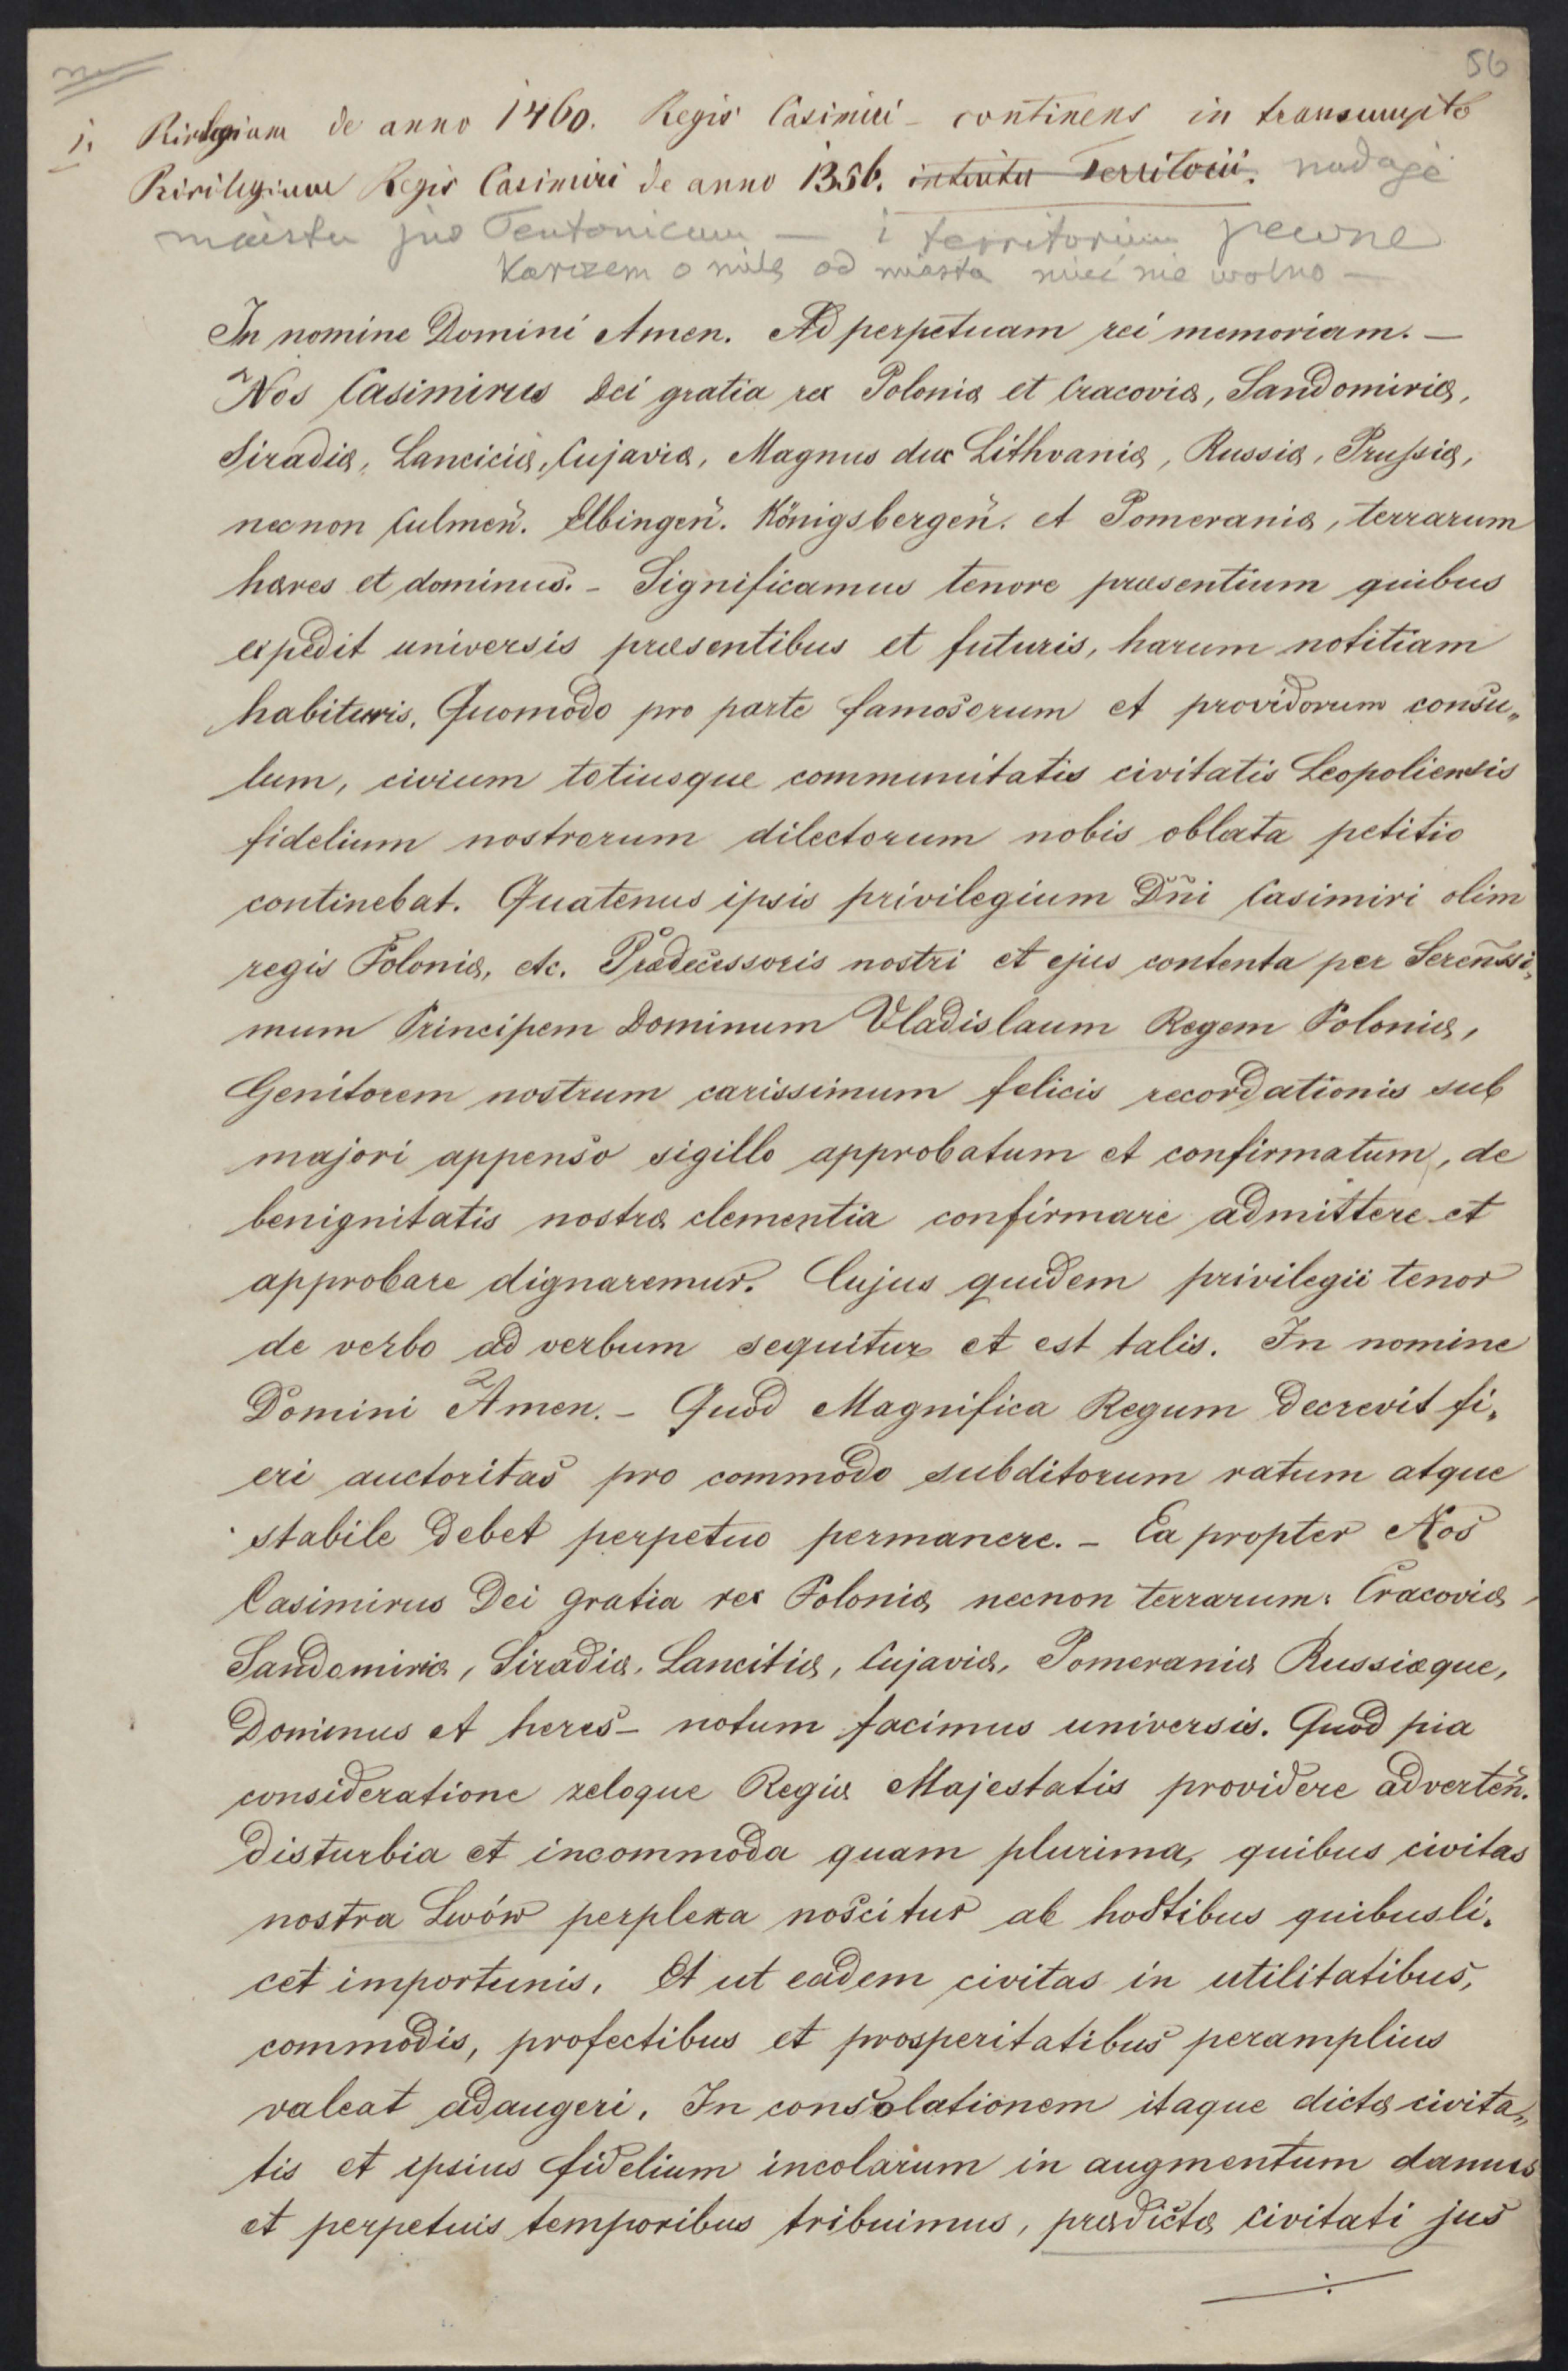 56
1. Privilegium de anno 1460. Regis Casimiri – continens in transumpto
Privilegium Regis Casimiri de anno 1356. intuitu Territorii. nadaje
miastu jus Teutonicum — i territorium pewne
Karczem o milę od miasta mieć nie wolno —
In nomine Domini Amen. Ad perpetuam rei memoriam. —
Nos Casimirus Dei gratia rex Poloniæ et Cracoviæ, Sandomiriæ,
Siradiæ, Lanciciæ, Cujaviæ, Magnus dux Lithvaniæ, Russiæ, Prussiæ,
necnon Culmeñ. Elbingeñ. Königsbergeñ. et Pomeraniæ, terrarum
hæres et dominus. – Significamus tenore præsentium quibus
expedit universis præsentibus et futuris, harum notitiam
habituris. Quomodo pro parte famosorum et providorum consu„
lum, civium totiusque communitatis civitatis Leopoliensis
fidelium nostrorum dilectorum nobis oblata petitio
continebat. Quatenus ipsis privilegium Dñi Casimiri olim
regis Poloniæ, etc. Prædecessoris nostri et ejus contenta per Sereñssi„
mum Principem Dominum Vladislaum Regem Poloniæ,
Genitorem nostrum carissimum felicis recordationis sub
majori appenso sigillo approbatum et confirmatum, de
benignitatis nostræ clementia confirmare admittere et
approbare dignaremur. Cujus quidem privilegii tenor
de verbo ad verbum sequitur et est talis. In nomine
Domini Amen. – Quod Magnifica Regum decrevit fi„
eri auctoritas pro commodo subditorum ratum atque
stabile debet perpetuo permanere. – Ea propter Nos
Casimirus Dei gratia rex Poloniæ necnon terrarum: Cracoviæ,
Sandomiriæ, Siradiæ, Lancitiæ, Cujaviæ, Pomeraniæ Russiæque,
Dominus et heres – notum facimus universis. Quod pia
consideratione zeloque Regiæ Majestatis providere adverteñ.
disturbia et incommoda quam plurima, quibus civitas
nostra Lwów perplexa noscitur ab hostibus quibusli„
cet importunis. Et ut eadem civitas in utilitatibus,
commodis, profectibus et prosperitatibus peramplius
valeat adaugeri. In consolationem itaque dictæ civita„
tis et ipsius fidelium incolarum in augmentum damus
et perpetuis temporibus tribuimus, prædictæ civitati jus